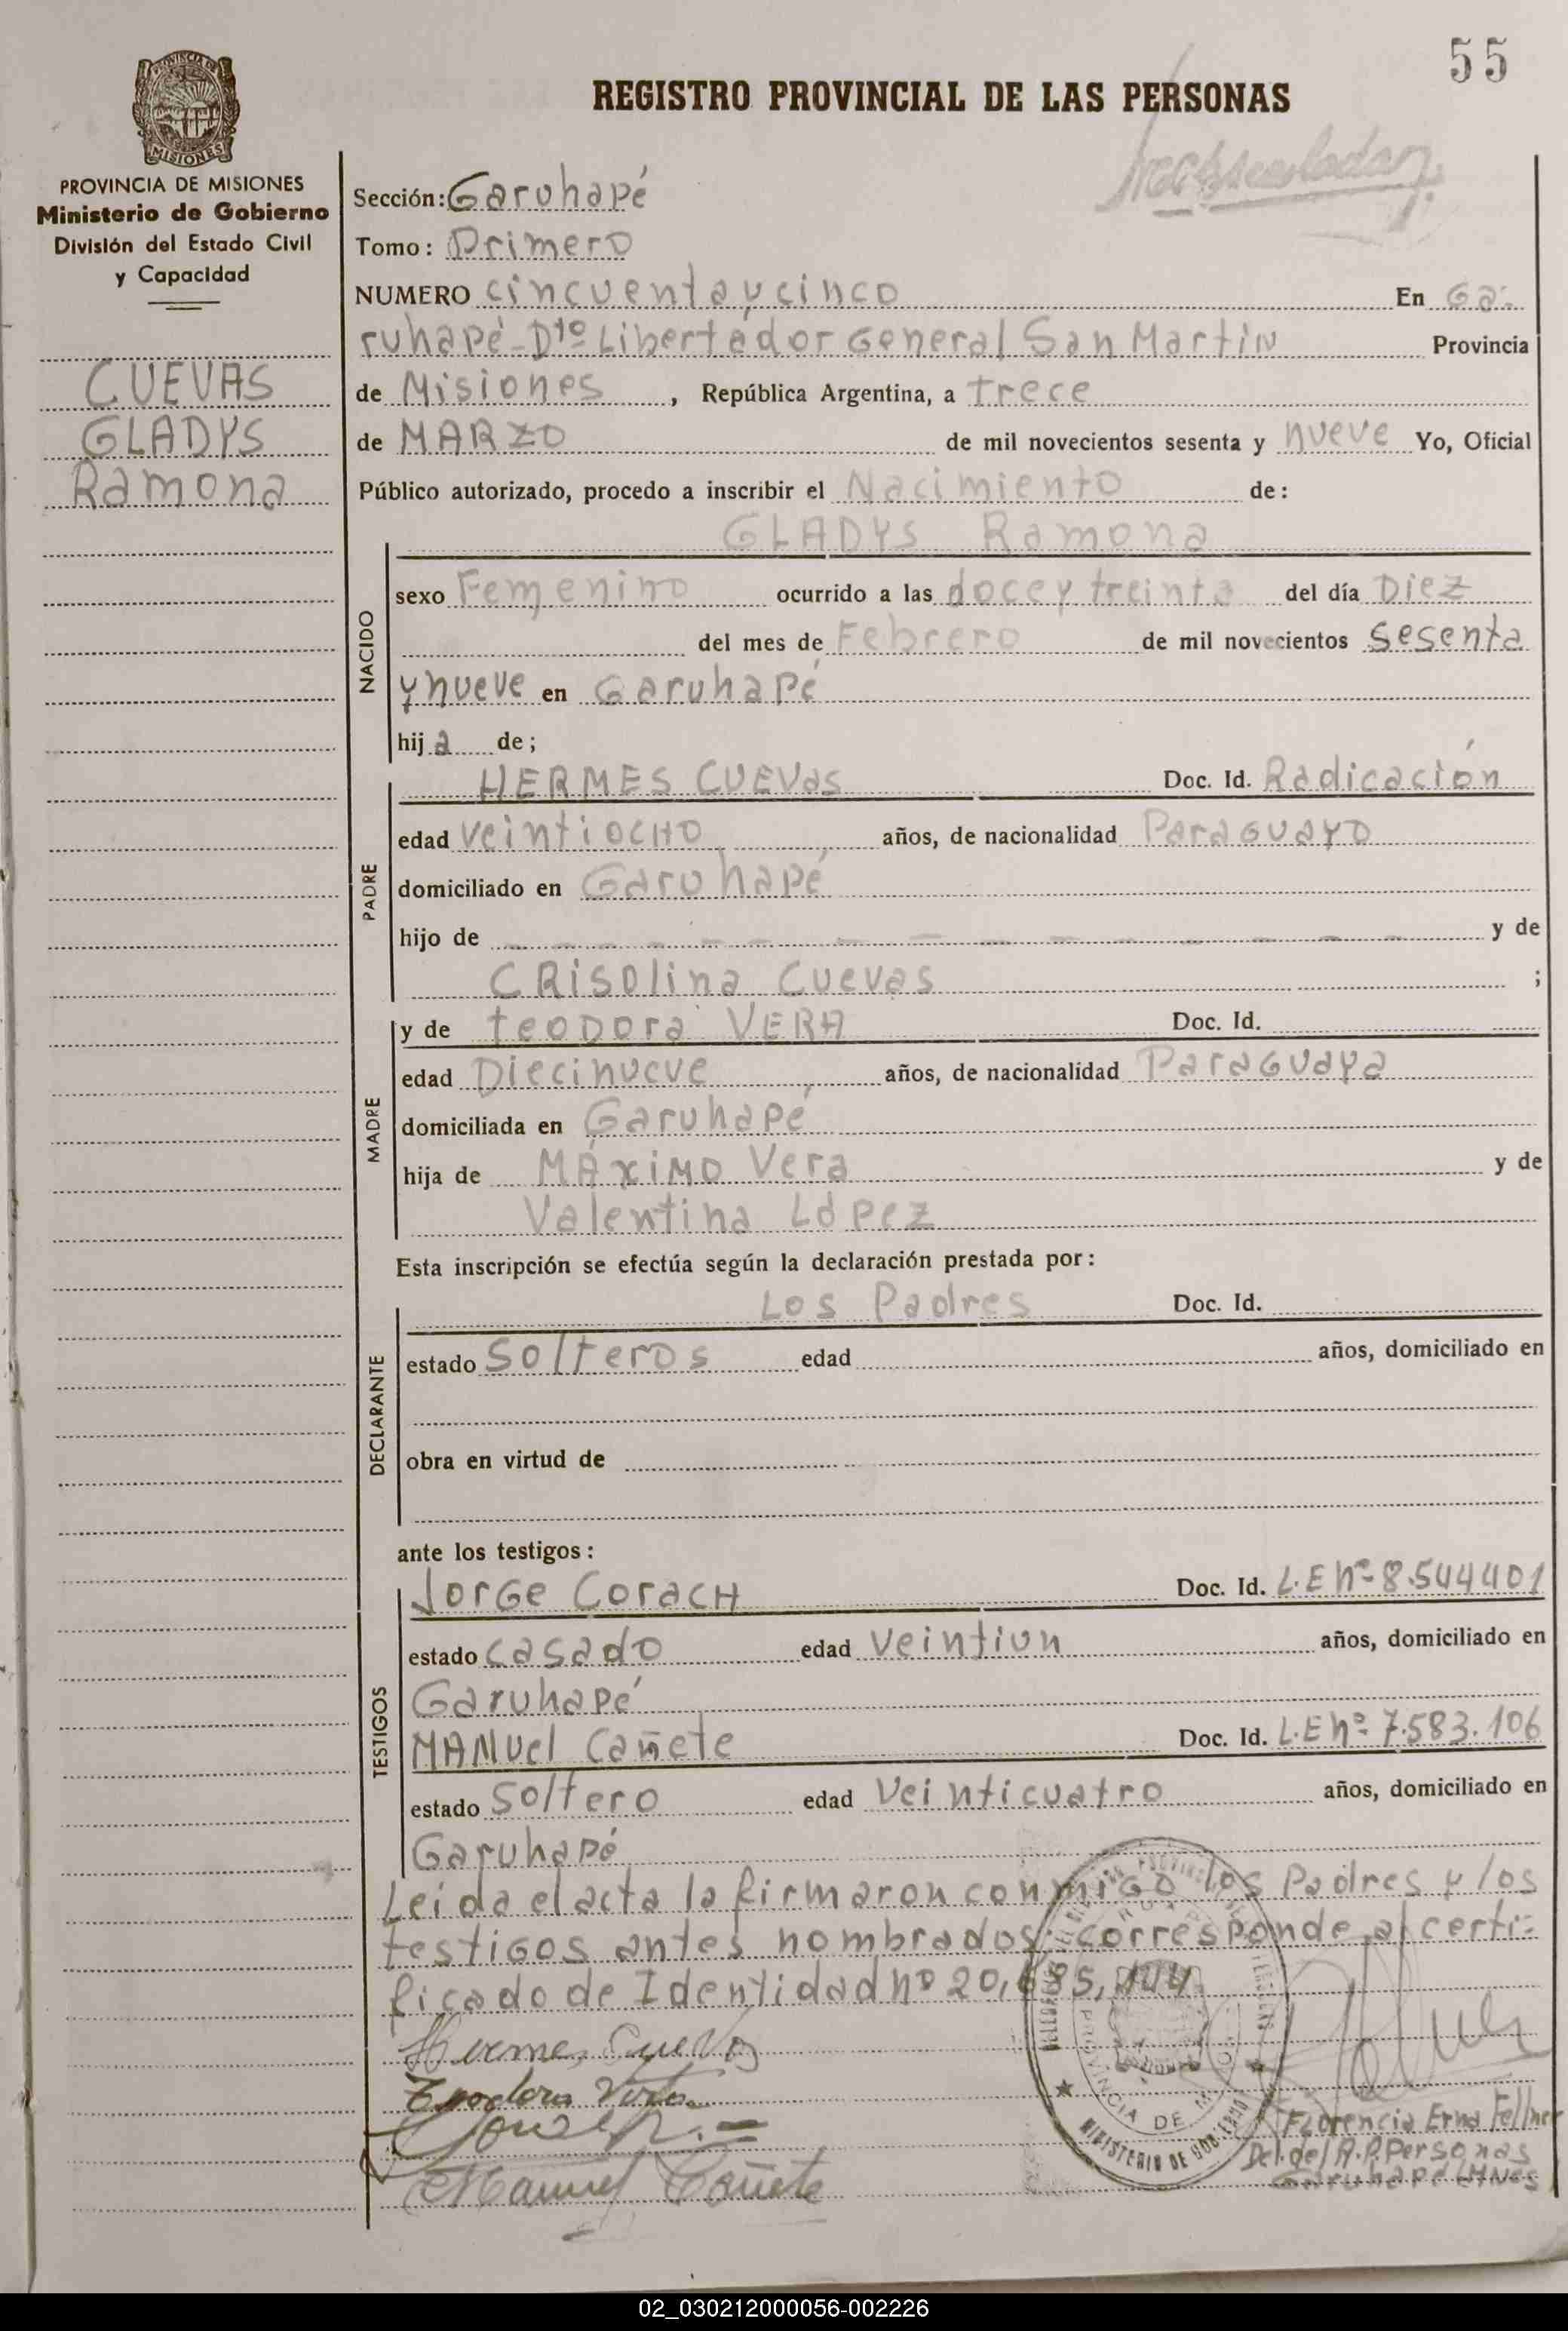 55
REGISTRO PROVINCIAL DE LAS PERSONAS
MISIONES
PROVINCIA DE MISIONES
Ministerio de Gobierno
División del Estado Civil
y Capacidad
CUEVAS
GLADYS
Ramona
Sección: Garuhapé
Tomo: Primero
NUMERO cincuenta y cinco En Ga-
ruhapé - Dto Libertador General San Martin Provincia
de Misiones, República Argentina, a trece
de MARZO de mil novecientos sesenta y nueve Yo, Oficial
Público autorizado, procedo a inscribir el Nacimiento de:
GLADYS Ramona
NACIDO
sexo Femenino ocurrido a las doce y treinta del día Diez
del mes de Febrero de mil novecientos sesenta
y nueve en Garuhapé
hija de;
PADRE
HERMES CUEVAS Doc. Id. Radicación
edad veintiocho años, de nacionalidad Paraguayo
domiciliado en Garuhapé
hijo de - - - - - - - - - - y de
CRisolina Cuevas ;
MADRE
y de teodora VERA Doc. Id.
edad Diecinueve años, de nacionalidad Paraguaya
domiciliada en Garuhapé
hija de MÁXIMO Vera y de
Valentina López
Esta inscripción se efectúa según la declaración prestada por:
DECLARANTE
Los Padres Doc. Id.
estado solteros edad años, domiciliado en
obra en virtud de
ante los testigos:
TESTIGOS
Jorge Corach Doc. Id. L.E nº 8.544401
estado casado edad Veintiun años, domiciliado en
Garuhapé
MANuel Cañete Doc. Id. L.E nº 7.583.106
estado soltero edad Veinticuatro años, domiciliado en
Garuhapé
Leida el acta la firmaron conmigo los Padres y los
testigos antes nombrados; corresponde al certi-
ficado de Identidad nº 20,685,144
Hermes Cuevas
Teodora Vera
Manuel Cañete
PROVINCIA DE
MINISTERIO DE GOBIERNO
Florencia Erna Fellner
Del. del R.P. Personas
Garuhapé - Mnes
02_030212000056-002226